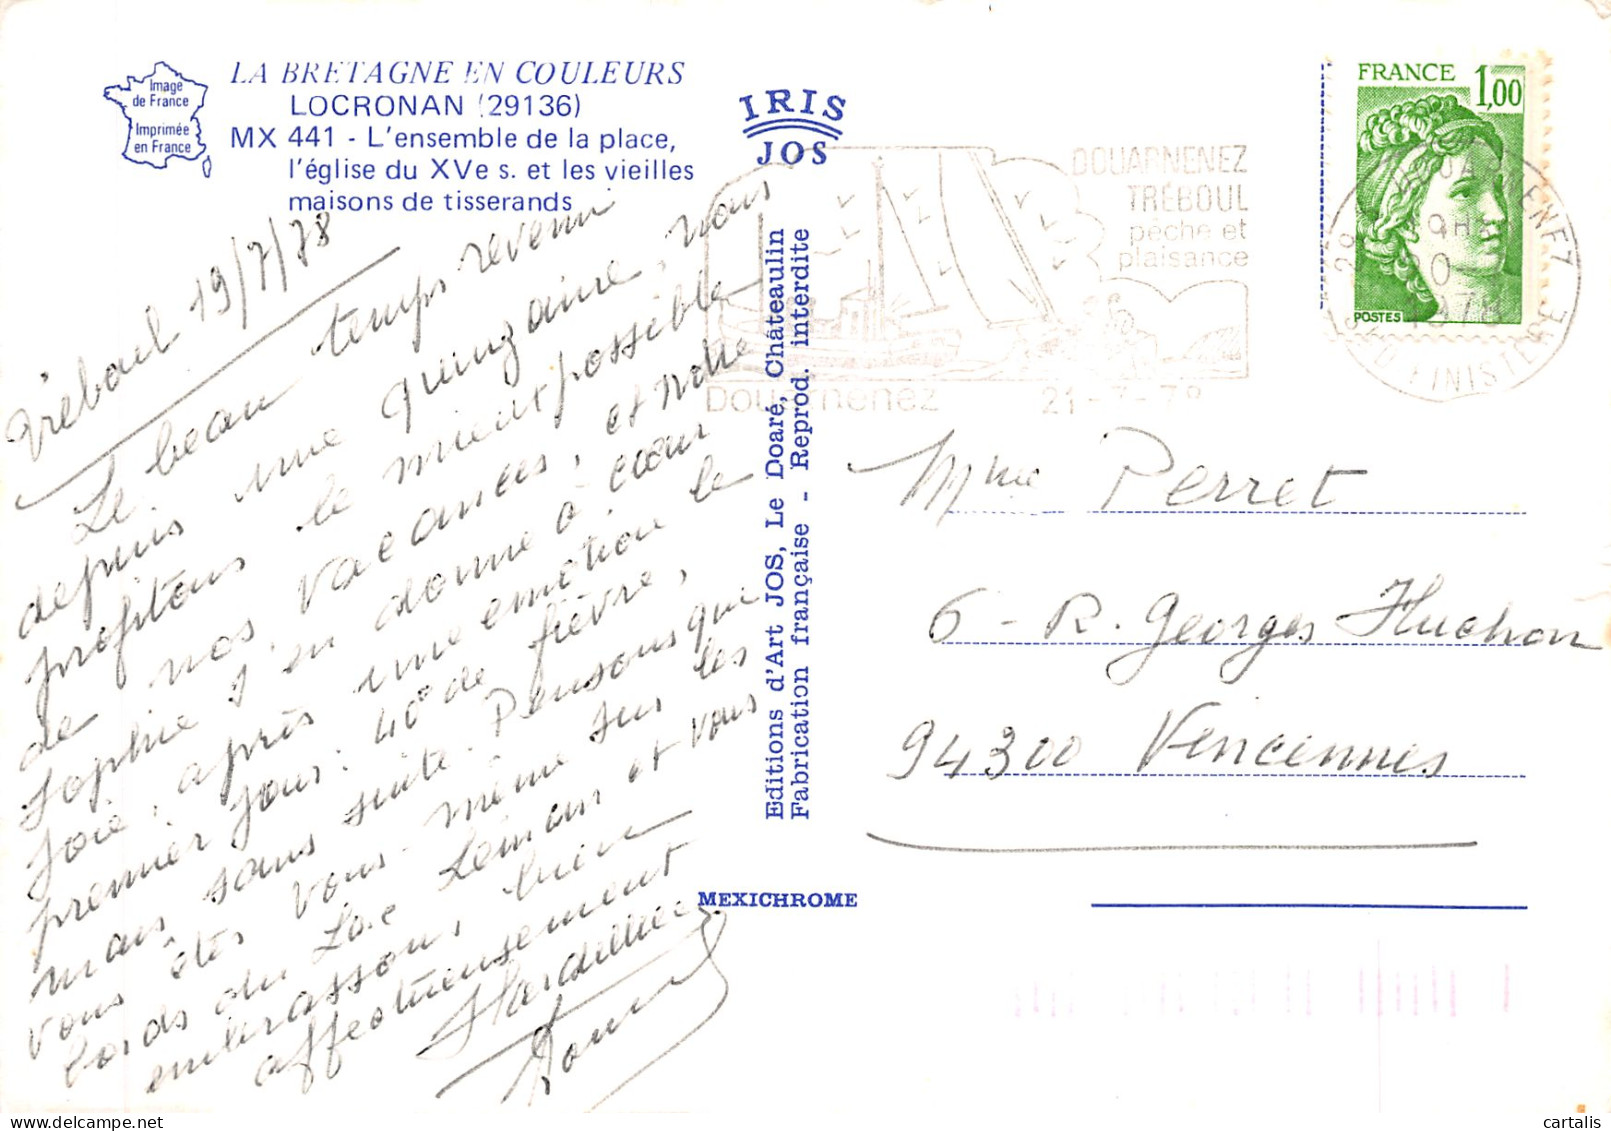 LA BRETAGNE EN COULEURS
LOCRONAN (29136)
MX 441 - L'ensemble de la place,
l'église du XVe s. et les vieilles
maisons de tisserands
Image
de France
Imprimée
en France
IRIS
JOS
Tréboul 19/7/78
Le beau temps revenu
depuis une quinzaine, nous
profitons le mieux possible
de nos vacances, et notre
Sophie s'en donne à coeur
joie, après une émotion le
premier jour: 40° de fièvre,
mais sans suite. Pensons que
vous êtes vous-même sur les
bords du Lac Léman et vous
embrassons, bien
affectueusement
Editions d'Art JOS, Le Doaré, Châteaulin
Fabrication française - Reprod. interdite
MEXICHROME
DOUARNENEZ
TRÉBOUL
pêche et
plaisance
Douarnenez 21-7-78
FRANCE 1,00
POSTES
DOUARNENEZ
FINISTERE
Mme Perret
6 - R. Georges Huchon
94300 Vincennes
cartalis